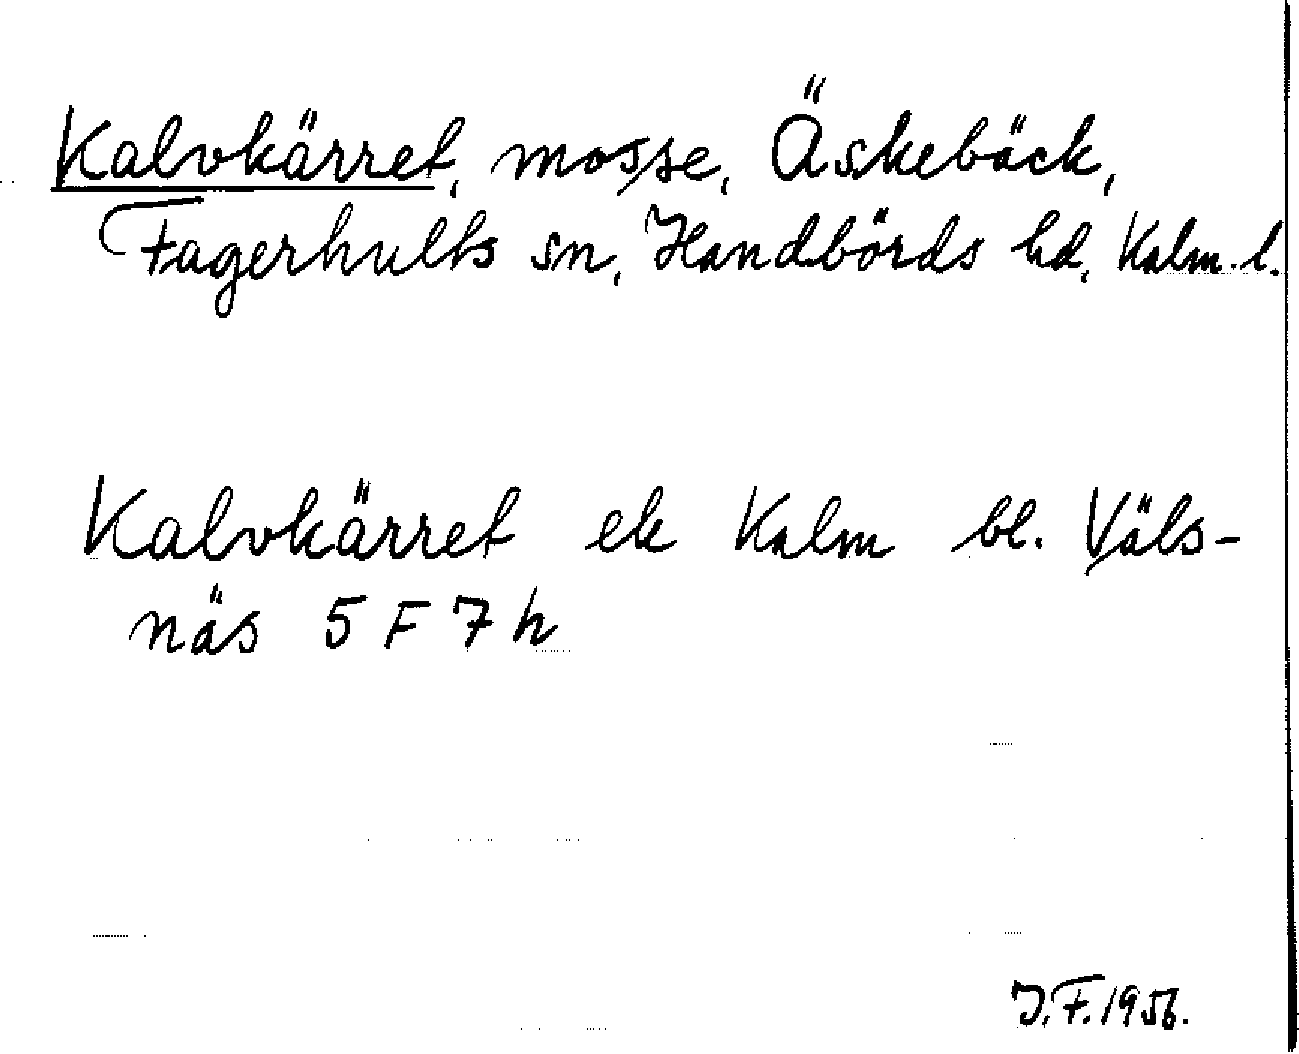 Kalvkärret, mosse, Äskebäck,
Fagerhults sn, Handbörds hd, Kalm. l.
Kalvkärret ek Kalm bl. Väls-
näs 5 F 7 h
J.F. 1956.